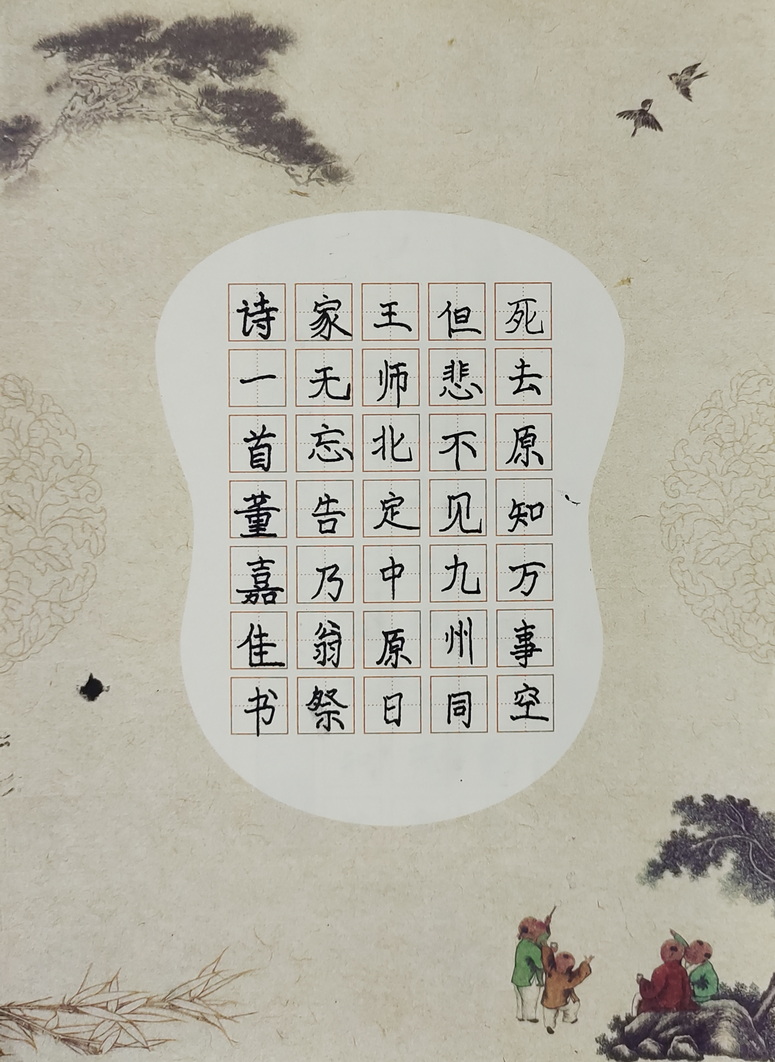 死去原知万事空
但悲不见九州同
王师北定中原日
家无忘告乃翁祭
诗一首董嘉佳书